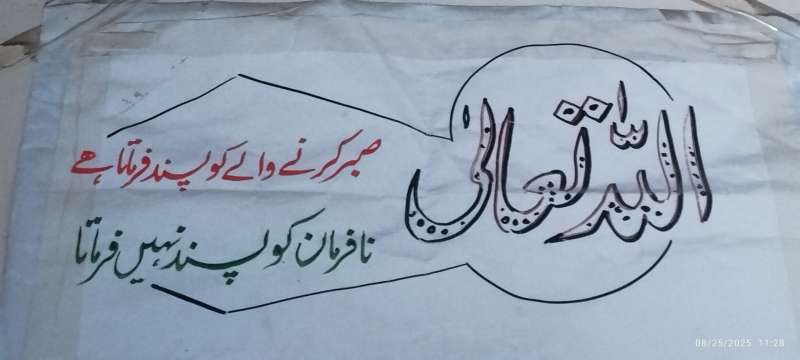 اللہ تعالیٰ
صبر کرنے والے کو پسند فرماتا ہے
نافرمان کو پسند نہیں فرماتا
08/25/2025 11:28